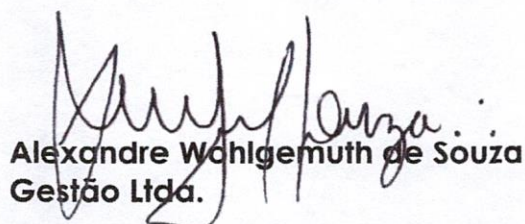 Alexandre Wohlgemuth de Souza
Gestão Ltda.